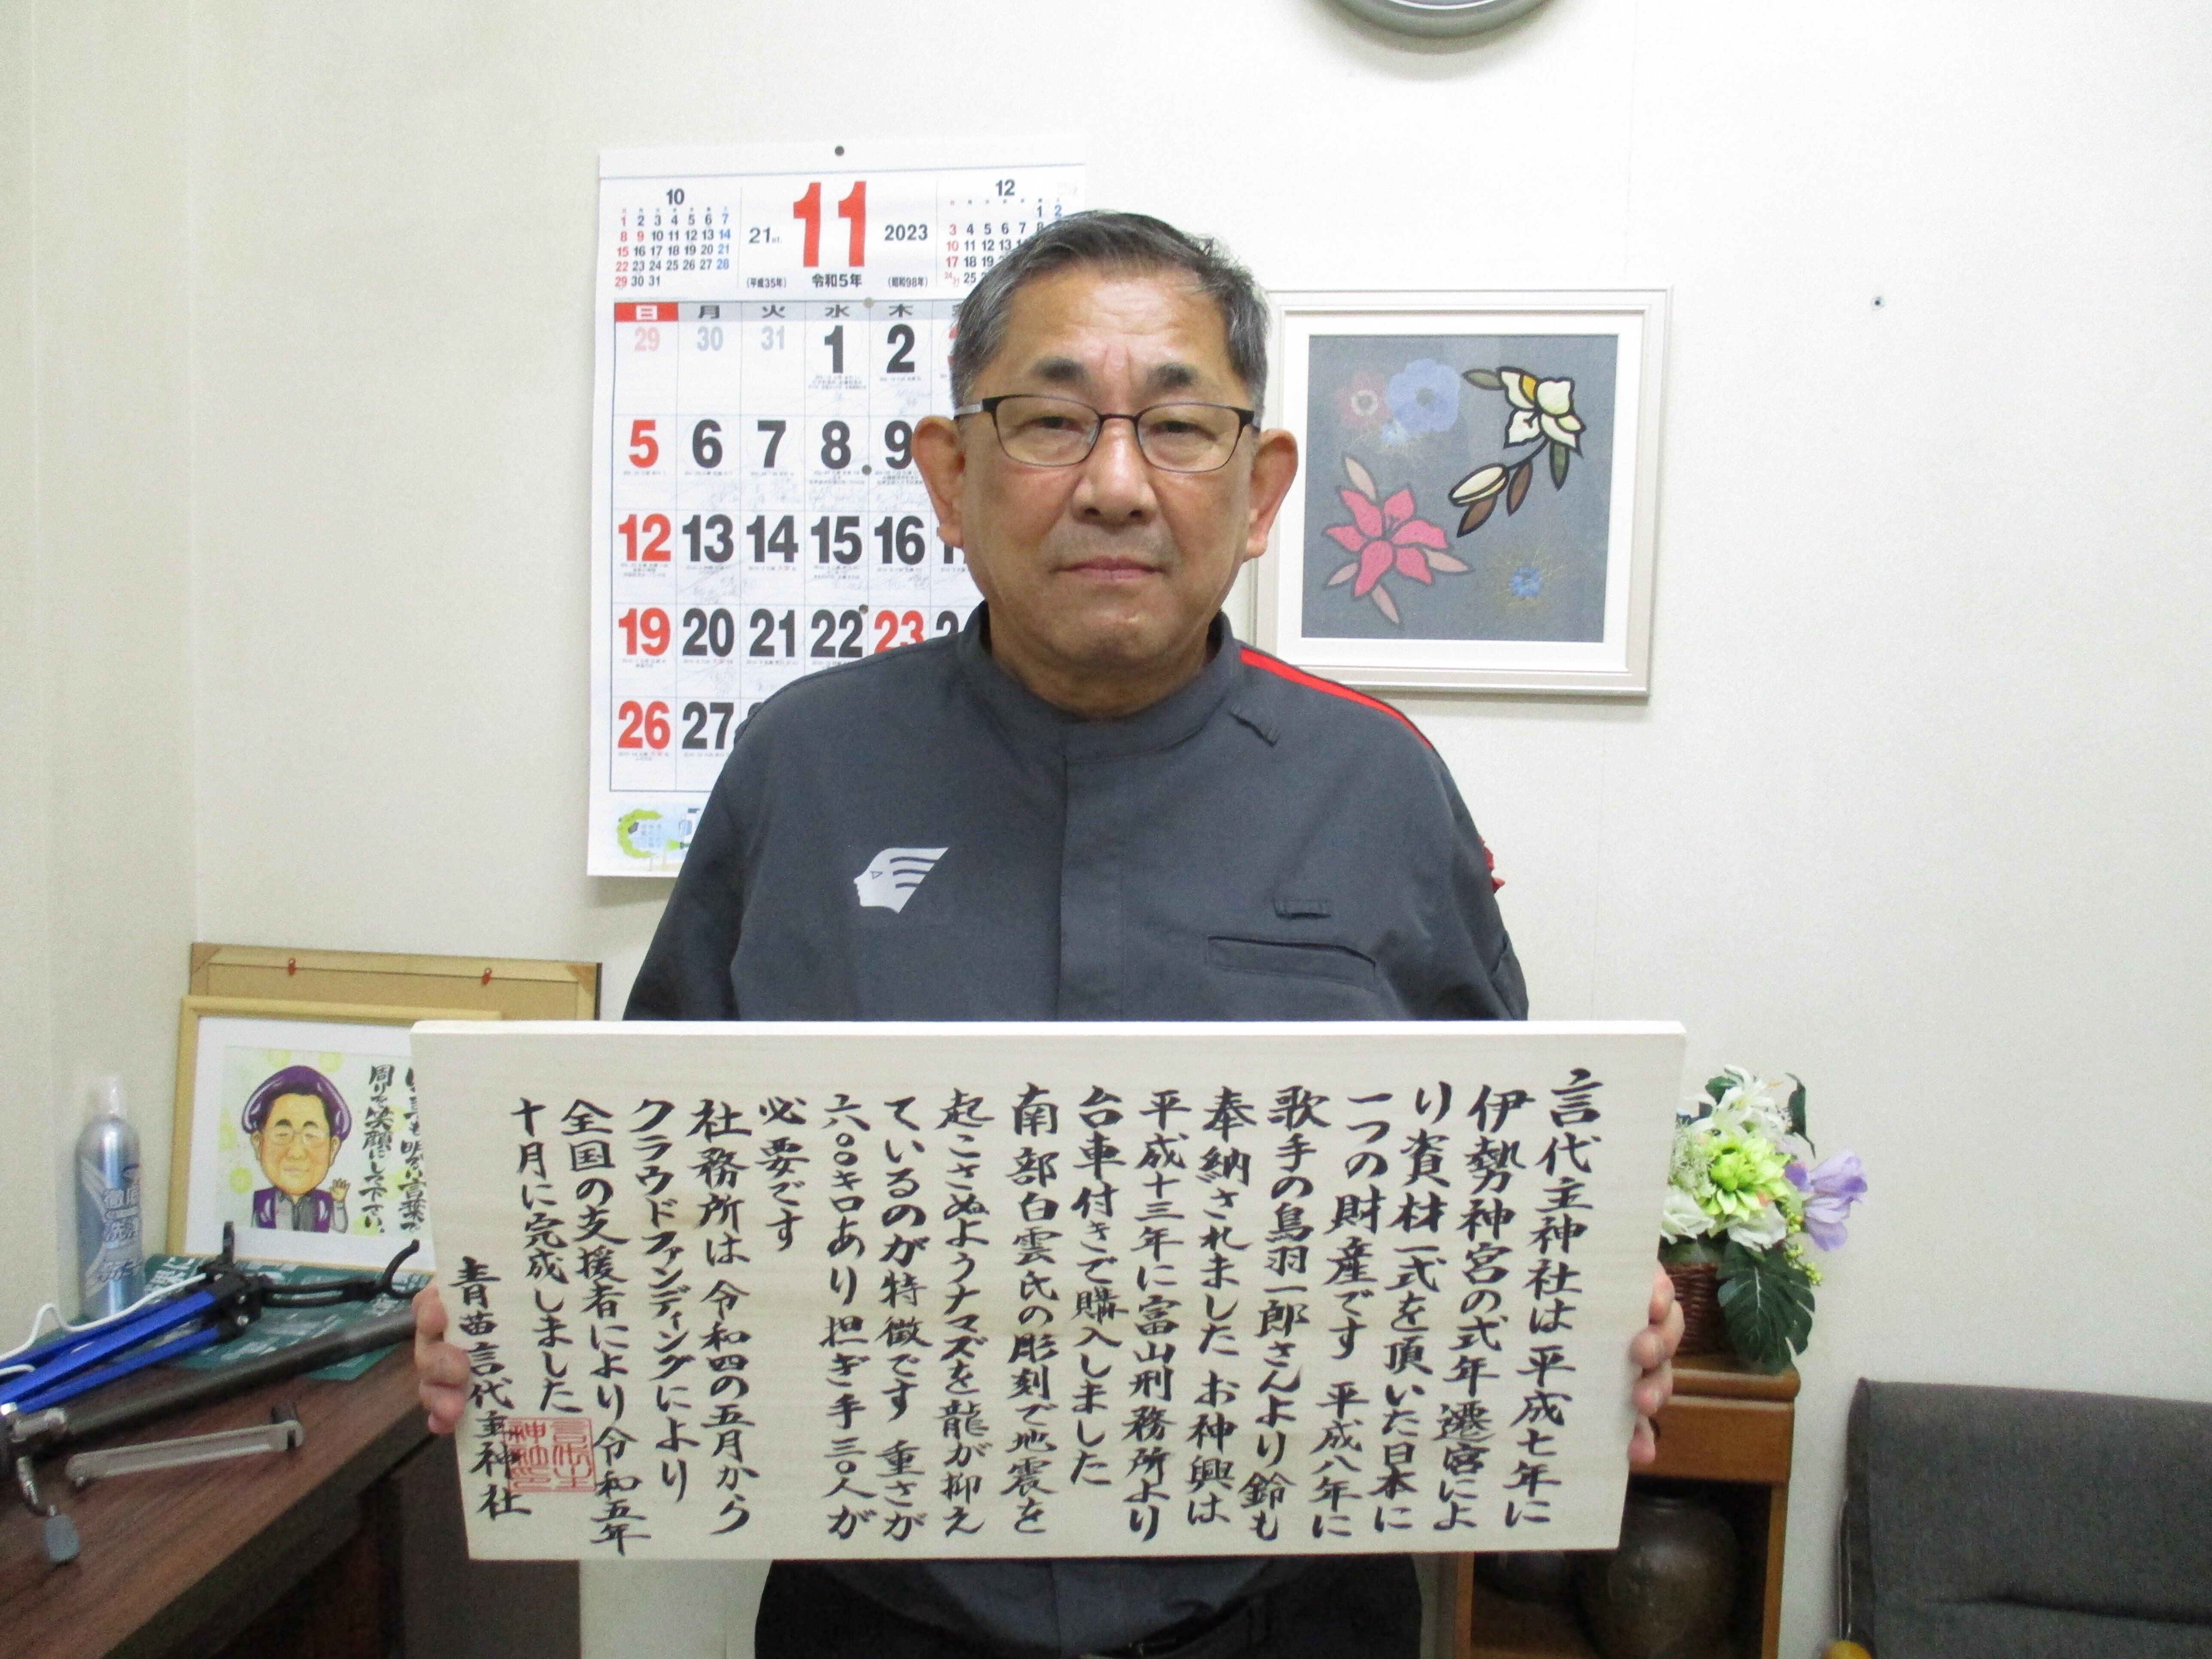 10
11
12
21st.
2023
(平成35年)
令和5年
(昭和98年)
1 2 3 4 5 6 7
8 9 10 11 12 13 14
15 16 17 18 19 20 21
22 23 24 25 26 27 28
29 30 31
1 2
3 4 5 6 7 8
10 11 12 13
17 18 19
25
日 月 火 水 木
29 30 31 1 2
5 6 7 8 9
12 13 14 15 16
19 20 21 22 23
26 27
言代主神社は平成七年に
伊勢神宮の式年遷宮によ
り資材一式を頂いた日本に
一つの財産です 平成八年に
歌手の鳥羽一郎さんより鈴も
奉納されました お神輿は
平成十三年に富山刑務所より
台車付きで購入しました
南部白雲氏の彫刻で地震を
起こさぬようナマズを龍が抑え
ているのが特徴です 重さが
六〇〇キロあり担ぎ手三〇人が
必要です
社務所は令和四の五月から
クラウドファンディングにより
全国の支援者により令和五年
十月に完成しました
青苗言代主神社
周りを笑顔にして下さい。